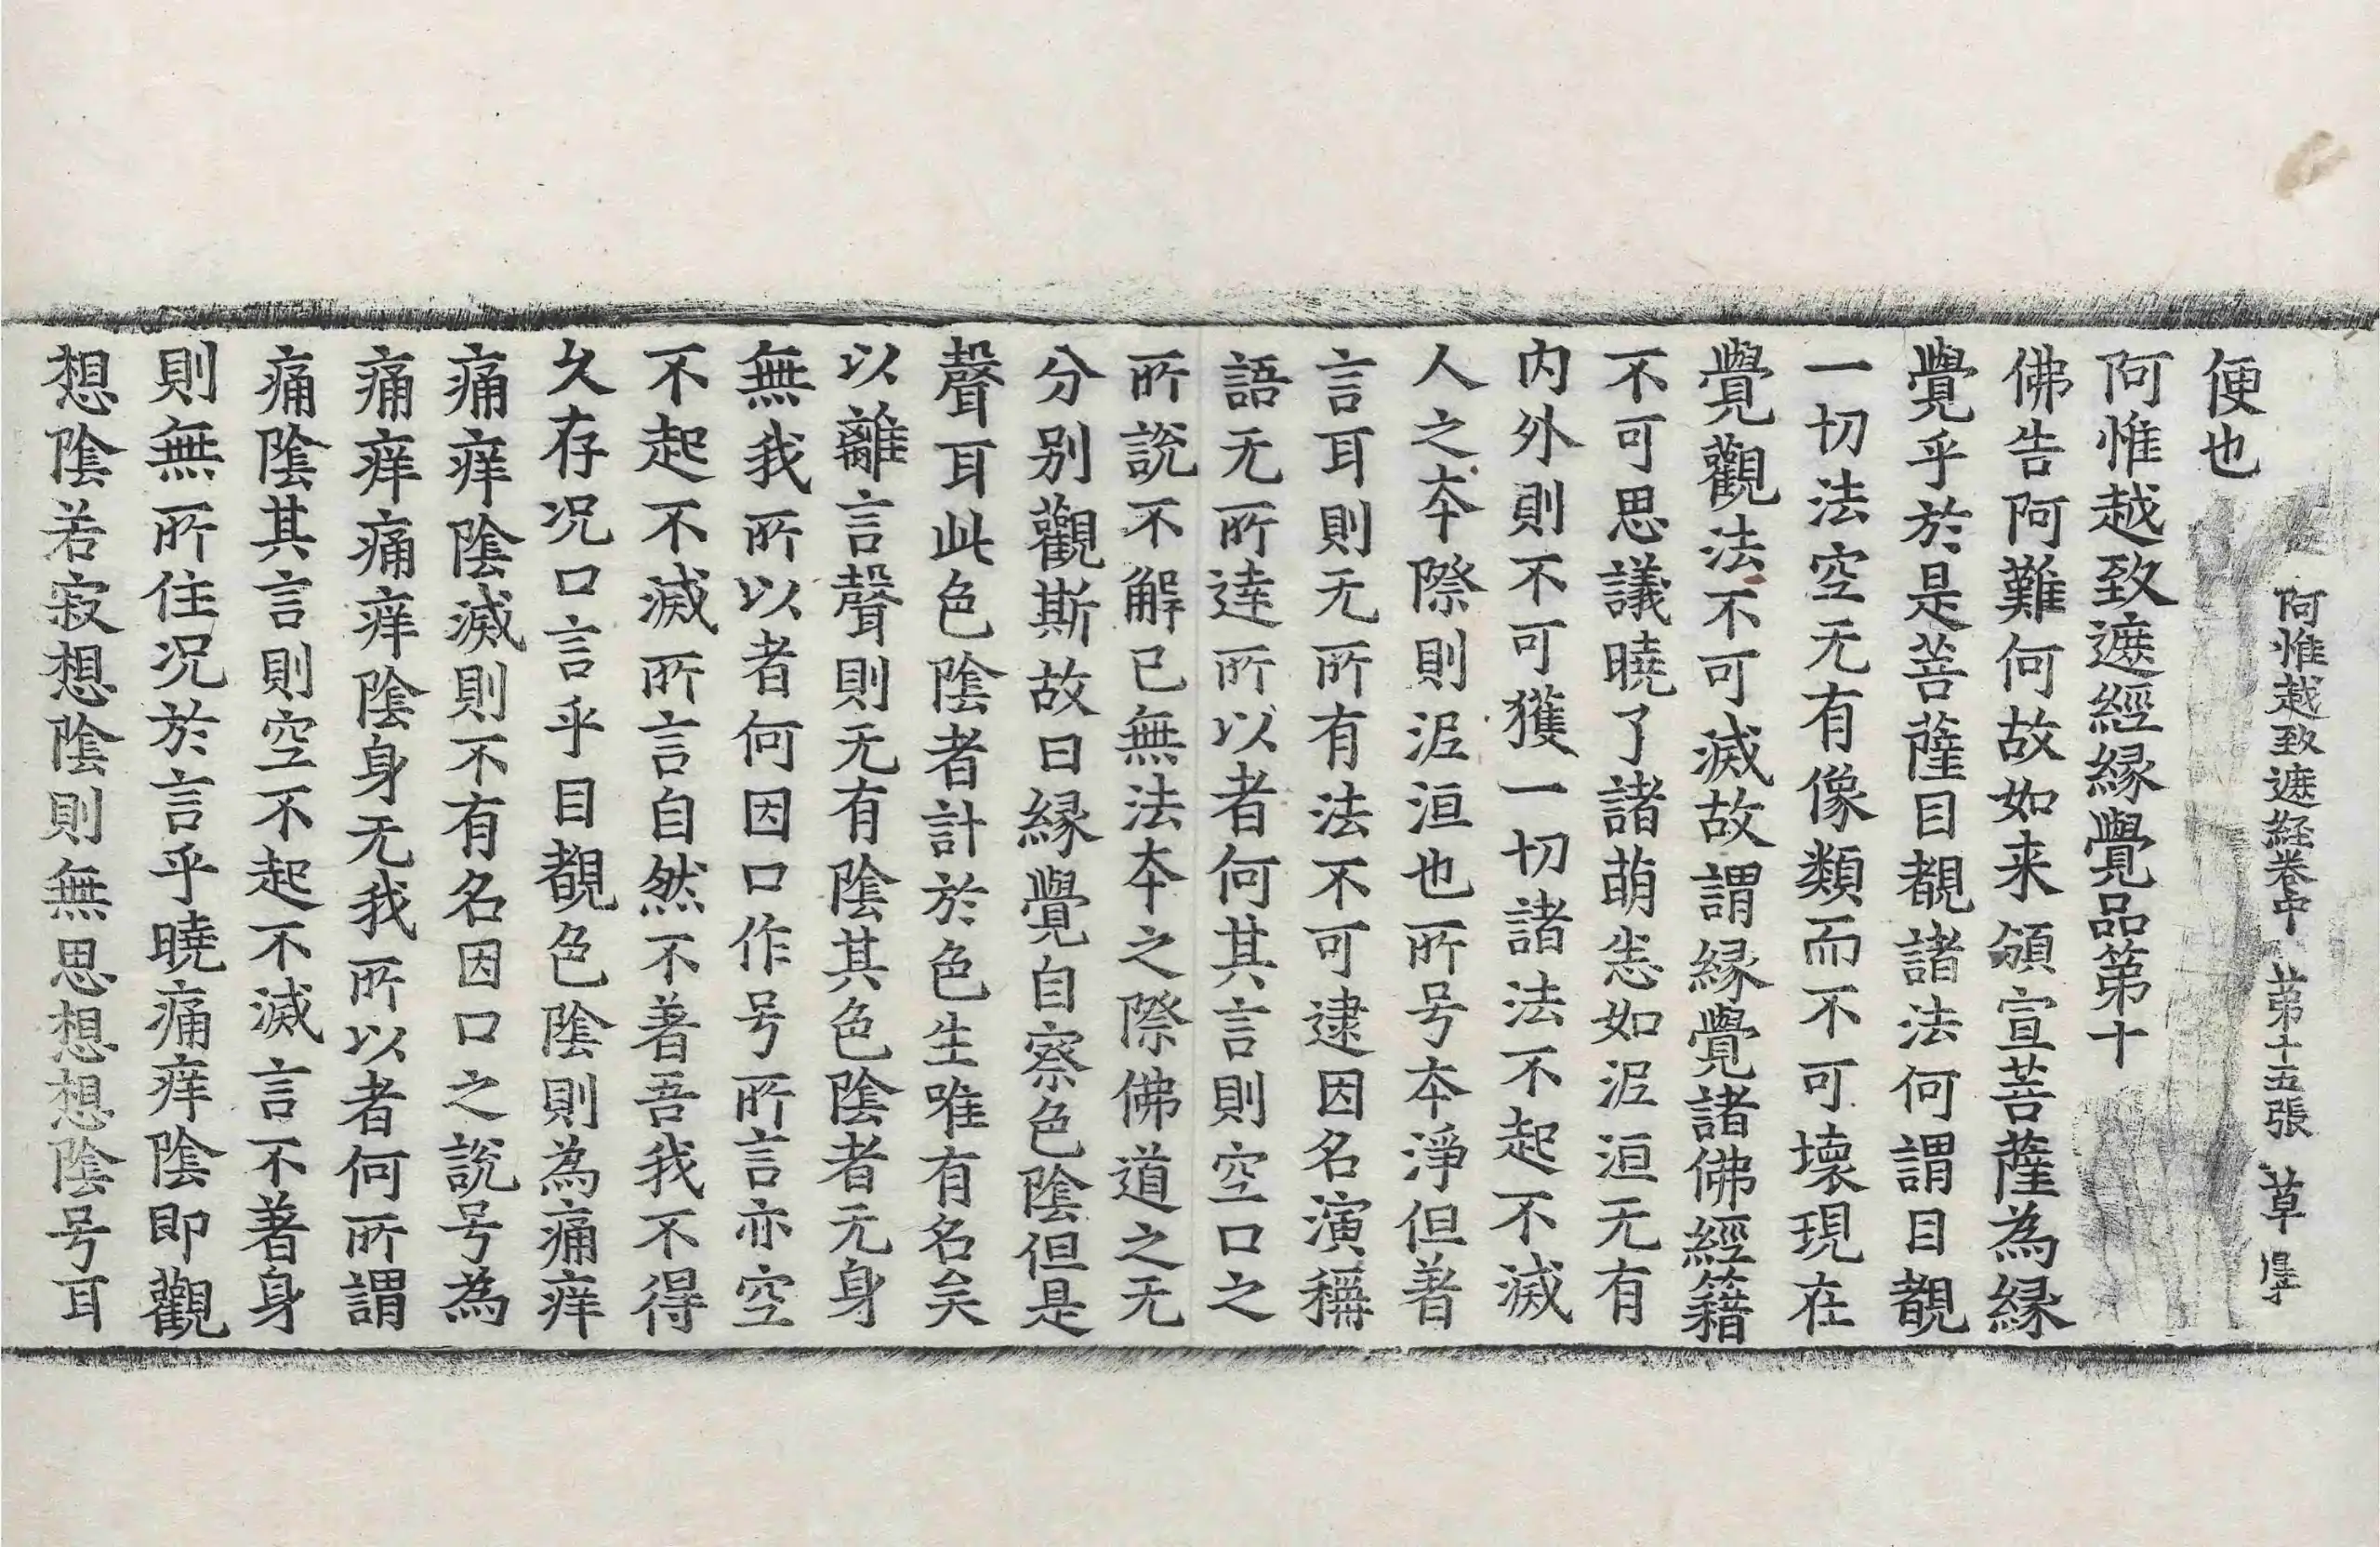 阿惟越致遮経卷中 第十五張 草
便也
阿惟越致遮經緣覺品第十
佛告阿難何故如来頒宣菩薩為緣
覺乎於是菩薩目覩諸法何謂目覩
一切法空无有像類而不可壞現在
覺觀法不可滅故謂緣覺諸佛經籍
不可思議曉了諸萌恙如泥洹无有
内外則不可獲一切諸法不起不滅
人之夲際則泥洹也所号夲淨但著
言耳則无所有法不可逮因名演稱
語无所達所以者何其言則空口之
所說不解已無法夲之際佛道之无
分别觀斯故曰緣覺自察色陰但是
聲耳此色陰者計於色生唯有名矣
以離言聲則无有陰其色陰者无身
無我所以者何因口作号所言亦空
不起不滅所言自然不著吾我不得
久存况口言乎目覩色陰則為痛痒
痛痒陰滅則不有名因口之說号為
痛痒痛痒陰身无我所以者何所謂
痛陰其言則空不起不滅言不著身
則無所住况於言乎曉痛痒陰即觀
想陰若寂想陰則無思想想陰号耳